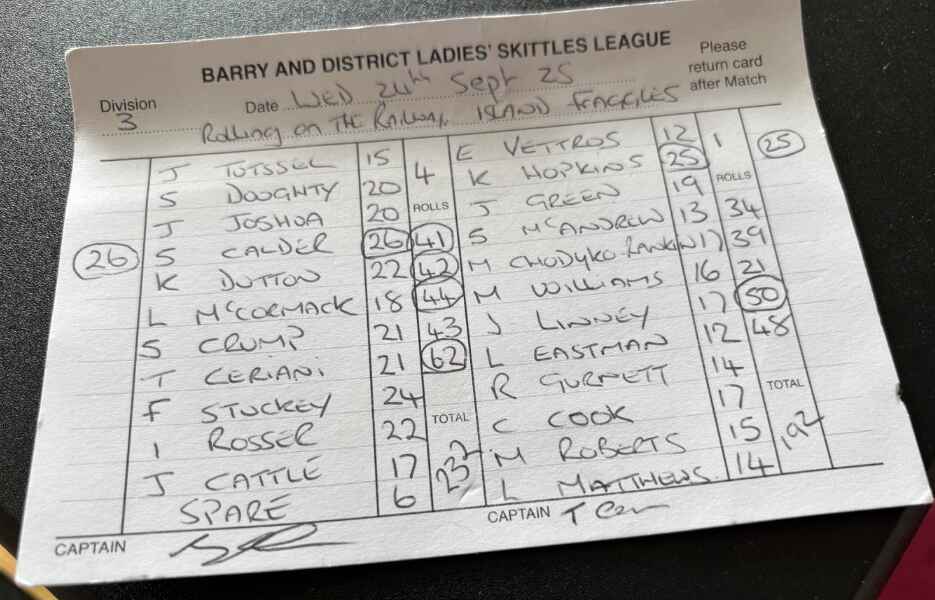 BARRY AND DISTRICT LADIES' SKITTLES LEAGUE
Please return card after Match
Division 3
Date WED 24th Sept 25
Rolling on The Railway ISLAND FRAGGLES
J TOTSSEL 15
S DOUGHTY 20
J JOSHUA 20
26 S CALDER 26
K DUTTON 22
L McCORMACK 18
S CRUMP 21
T CERIANI 21
F STUCKEY 24
I ROSSER 22
J CATTLE 17
SPARE 6
4
ROLLS
41
42
44
43
62
TOTAL
232
E VETTROS 12
K HOPKINS 25
J GREEN 19
S McANDREW 13
M CHODYKO-RANKIN 17
M WILLIAMS 16
J LINNEY 17
L EASTMAN 12
R GURNETT 14
C COOK 17
M ROBERTS 15
L MATTHEWS 14
1
25
ROLLS
34
39
21
50
48
TOTAL
192
CAPTAIN
CAPTAIN